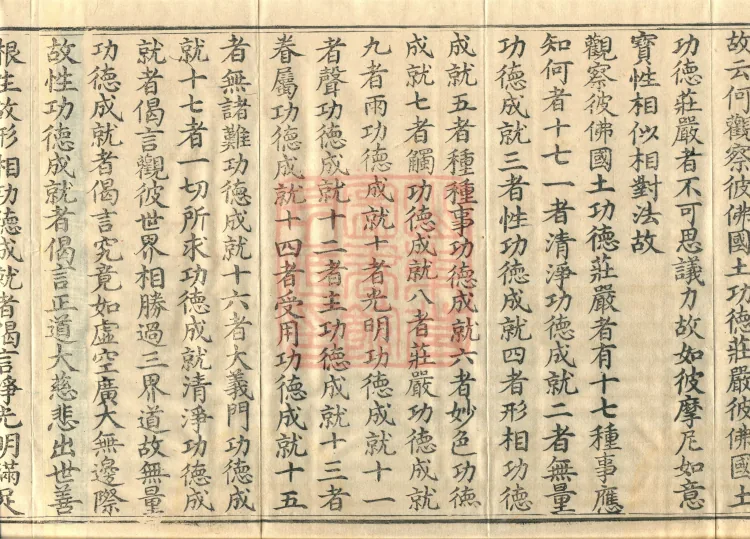 故云何觀察彼佛國土功德莊嚴彼佛國土
功德莊嚴者不可思議力故如彼摩尼如意
寶性相似相對法故
觀察彼佛國土功德莊嚴者有十七種事應
知何者十七一者清淨功德成就二者無量
功德成就三者性功德成就四者形相功德
成就五者種種事功德成就六者妙色功德
成就七者觸功德成就八者莊嚴功德成就
九者雨功德成就十者光明功德成就十一
者聲功德成就十二者主功德成就十三者
眷屬功德成就十四者受用功德成就十五
者無諸難功德成就十六者大義門功德成
就十七者一切所求功德成就清淨功德成
就者偈言觀彼世界相勝過三界道故無量
功德成就者偈言究竟如虛空廣大無邊際
故性功德成就者偈言正道大慈悲出世善
根生故形相功德成就者偈言淨光明滿足